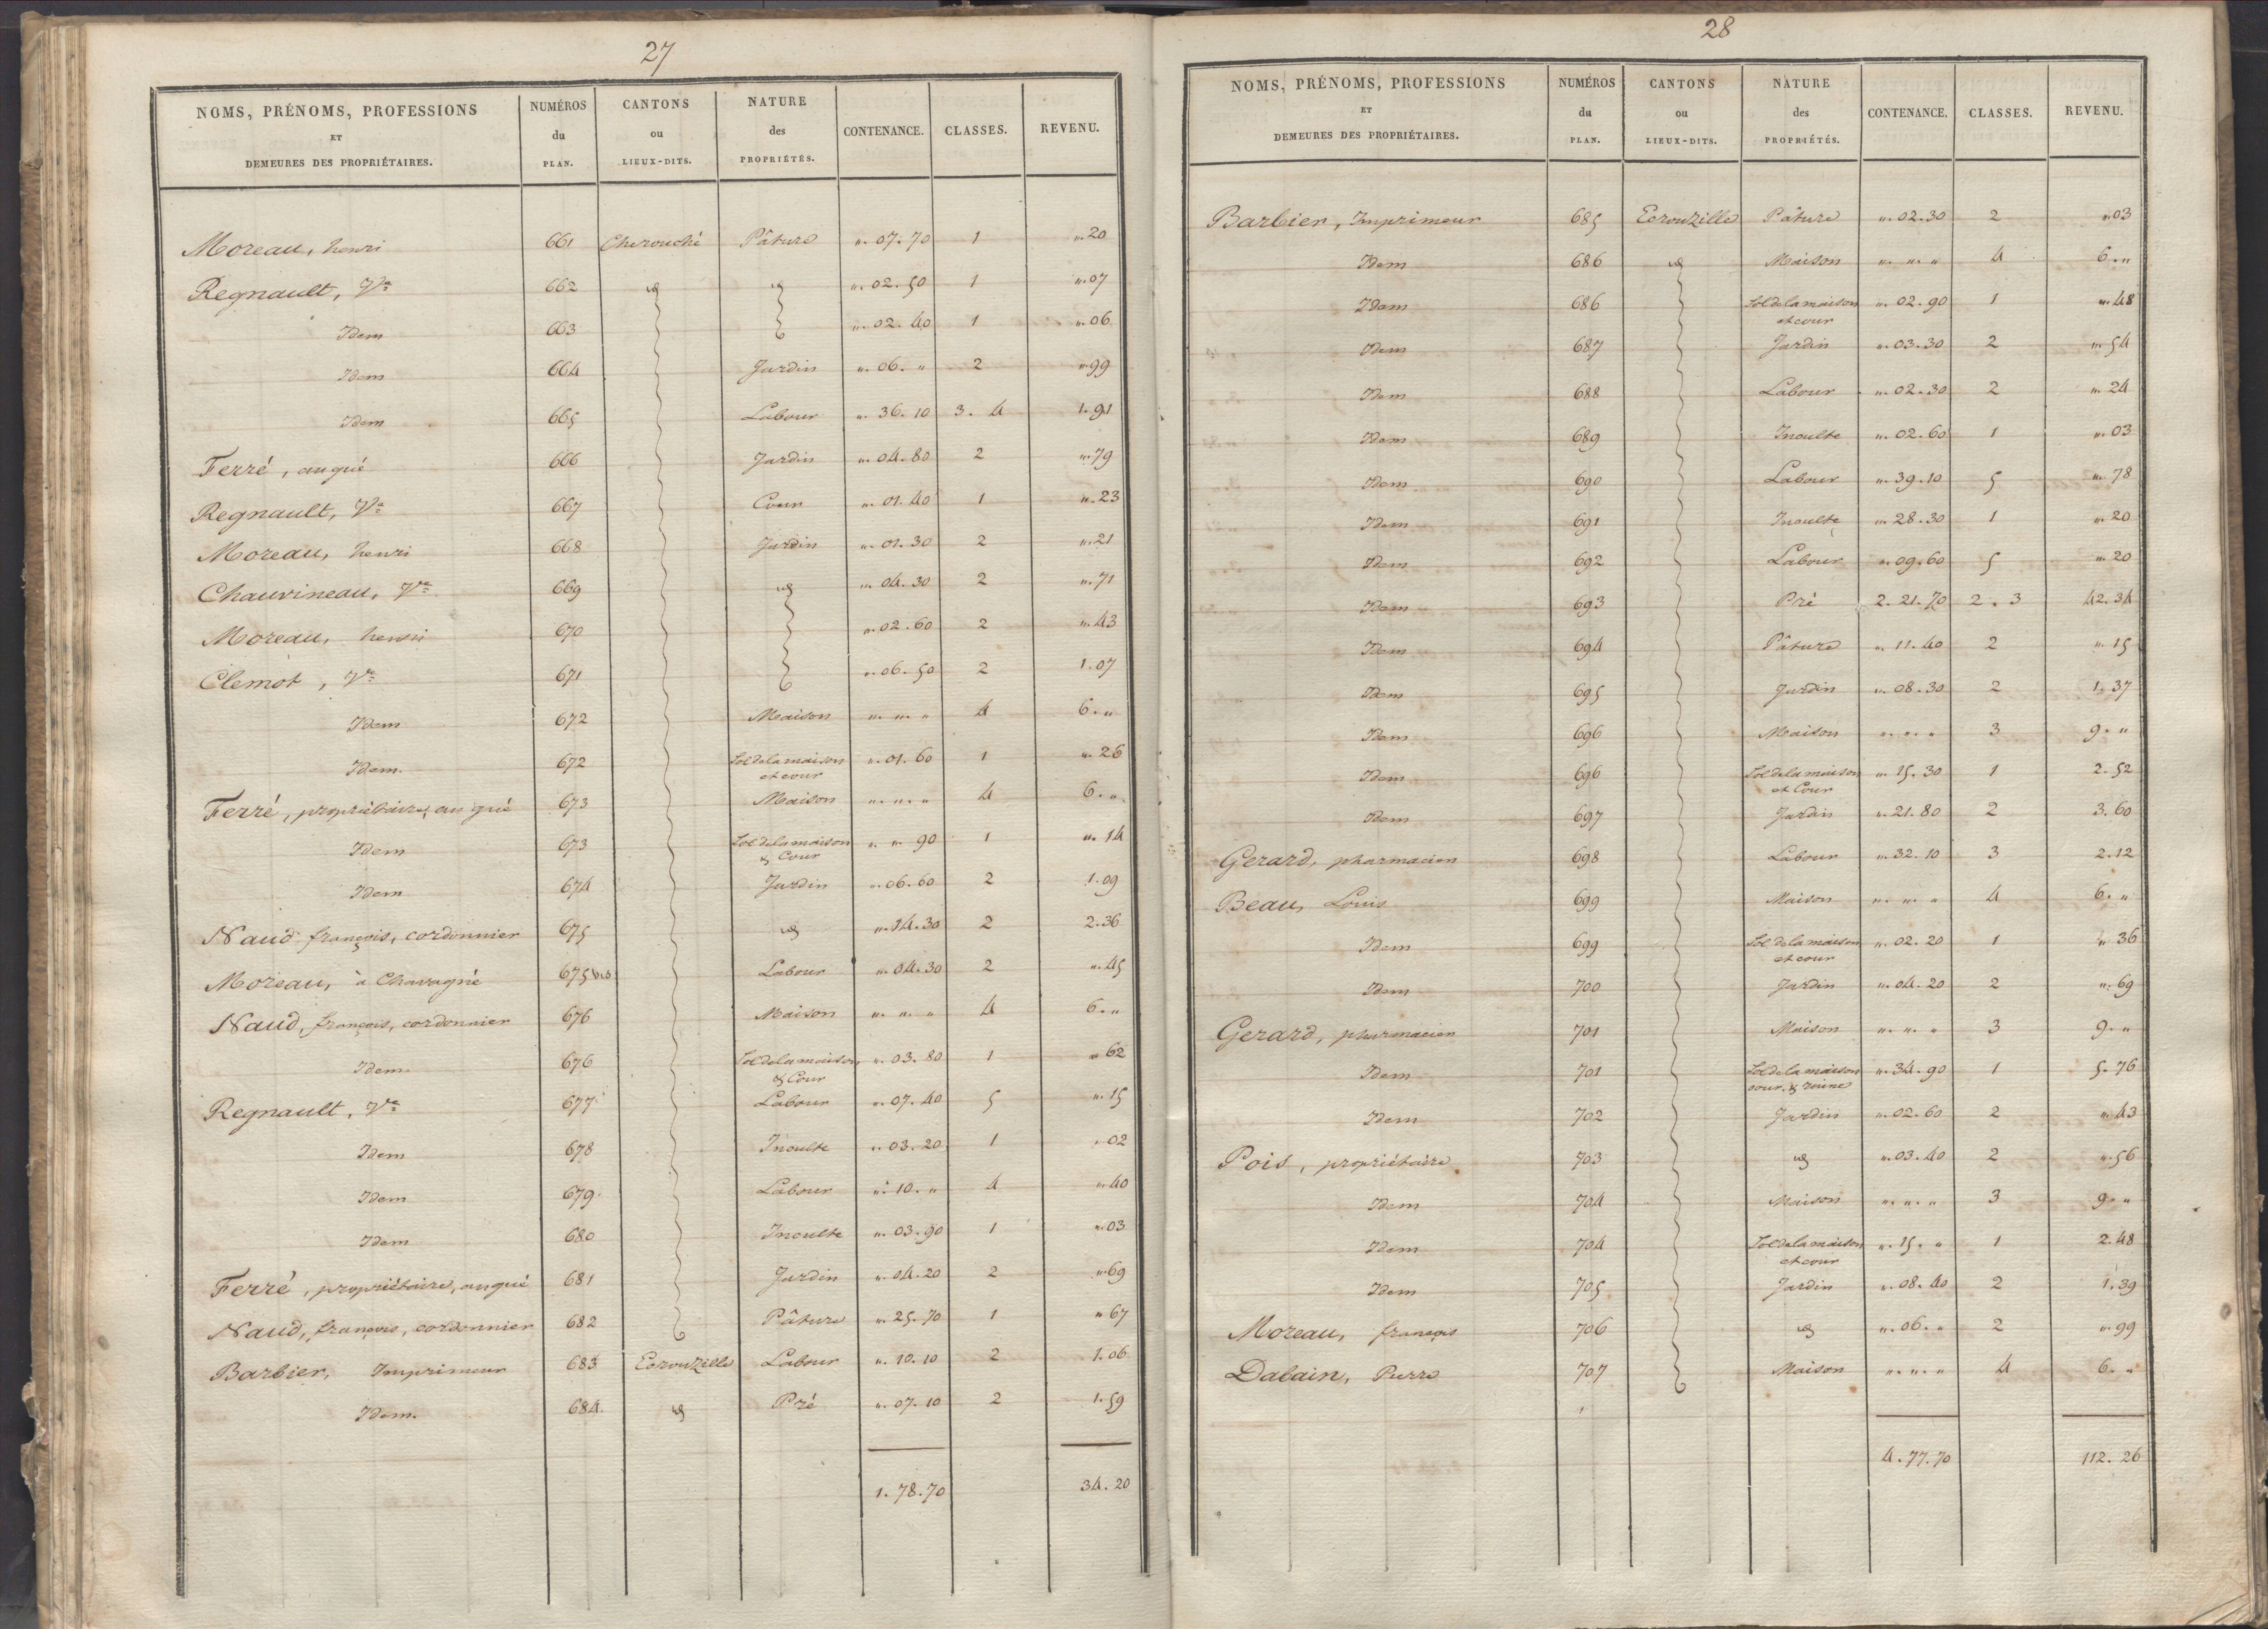 27
NOMS, PRÉNOMS, PROFESSIONS ET DEMEURES DES PROPRIÉTAIRES. NUMÉROS du PLAN. CANTONS ou LIEUX-DITS. NATURE des PROPRIÉTÉS. CONTENANCE. CLASSES. REVENU.
Moreau, henri 661 Cherouché Pâture ". 07. 70 1 ". 20
Regnault, Ve 662 id id ". 02. 50 1 ". 07
Idem 663 ". 02. 40 1 ". 06
Idem 664 Jardin ". 06. " 2 ". 99
Idem 665 Labour ". 36. 10 3. 4 1. 91
Ferré, au gué 666 Jardin ". 04. 80 2 ". 79
Regnault, Ve 667 Cour ". 01. 40 1 ". 23
Moreau, henri 668 Jardin ". 01. 30 2 ". 21
Chauvineau, Ve 669 id ". 04. 30 2 ". 71
Moreau, henri 670 ". 02. 60 2 ". 43
Clemot, Ve 671 ". 06. 50 2 1. 07
Idem 672 Maison ". ". " 4 6. "
Idem. 672 Sol de la maison et cour ". 01. 60 1 ". 26
Ferré, propriétaire, au gué 673 Maison ". ". " 4 6. "
Idem 673 Sol de la maison & Cour ". " 90 1 ". 14
Idem 674 Jardin ". 06. 60 2 1. 09
Naud françois, cordonnier 675 id ". 14. 30 2 2. 36
Moreau, à Chavagné 675 bis Labour ". 04. 30 2 ". 45
Naud, françois, cordonnier 676 Maison ". ". " 4 6. "
Idem 676 Sol de la maison & Cour ". 03. 80 1 ". 62
Regnault, Ve 677 Labour ". 07. 40 5 ". 15
Idem 678 Inculte ". 03. 20 1 ". 02
Idem 679 Labour ". 10. " 4 ". 40
Idem 680 Inculte ". 03. 90 1 ". 03
Ferré, propriétaire, au gué 681 Jardin ". 04. 20 2 ". 69
Naud, françois, cordonnier 682 Pâture ". 25. 70 1 ". 67
Barbier, Imprimeur 683 Ecrouzille Labour ". 10. 10 2 1. 06
Idem. 684. id Pré ". 07. 10 2 1. 59
1. 78. 70 34. 20
28
NOMS, PRÉNOMS, PROFESSIONS ET DEMEURES DES PROPRIÉTAIRES. NUMÉROS du PLAN. CANTONS ou LIEUX-DITS. NATURE des PROPRIÉTÉS. CONTENANCE. CLASSES. REVENU.
Barbier, Imprimeur 685 Ecrouzille Pâture ". 02. 30 2 ". 03
Idem 686 id Maison ". ". " 4 6. "
Idem 686 Sol de la maison et cour ". 02. 90 1 ". 48
Idem 687 Jardin ". 03. 30 2 ". 54
Idem 688 Labour ". 02. 30 2 ". 24
Idem 689 Inculte ". 02. 60 1 ". 03
Idem 690 Labour ". 39. 10 5 ". 78
Idem 691 Inculte ". 28. 30 1 ". 20
Idem 692 Labour ". 09. 60 5 ". 20
Idem 693 Pré 2. 21. 70 2. 3 42. 34
Idem 694 Pâture ". 11. 40 2 ". 15
Idem 695 Jardin ". 08. 30 2 1. 37
Idem 696 Maison ". ". " 3 9. "
Idem 696 Sol de la maison et Cour ". 15. 30 1 2. 52
Idem 697 Jardin ". 21. 80 2 3. 60
Gerard, pharmacien 698 Labour ". 32. 10 3 2. 12
Beau, Louis 699 Maison ". ". " 4 6. "
Idem 699 Sol de la maison et cour ". 02. 20 1 ". 36
Idem 700 Jardin ". 04. 20 2 ". 69
Gerard, pharmacien 701 Maison ". ". " 3 9. "
Idem 701 Sol de la maison cour, & ruine ". 34. 90 1 5. 76
Idem 702 Jardin ". 02. 60 2 ". 43
Pois, propriétaire 703 id ". 03. 40 2 ". 56
Idem 704 Maison ". ". " 3 9. "
Idem 704 Sol de la maison et cour ". 15. " 1 2. 48
Idem 705 Jardin ". 08. 40 2 1. 39
Moreau, françois 706 id ". 06. " 2 ". 99
Dabain, Pierre 707 Maison ". ". " 4 6. "
4. 77. 70 112. 26